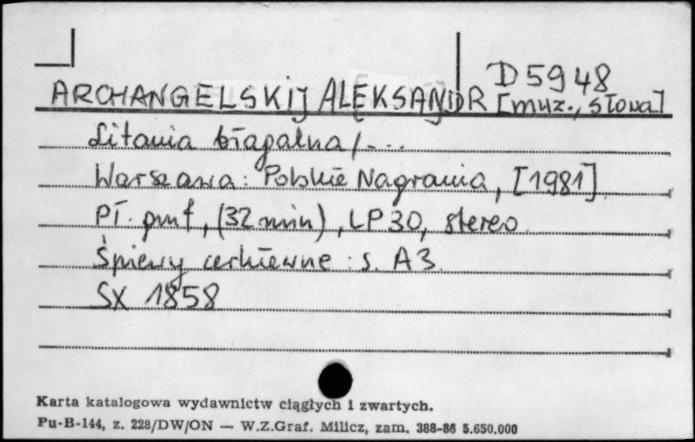 D 5948
ARCHANGELSKIJ ALEKSANDR [muz., słowa]
Litania błagalna / ...
Warszawa : Polskie Nagrania, [1981]
Pł. gmf, (32 min), LP 30, stereo
Śpiewy cerkiewne : s. A3
SX 1858
Karta katalogowa wydawnictw ciągłych i zwartych.
Pu-B-144, z. 228/DW/ON — W.Z.Graf. Milicz, zam. 388-86 5.650.000